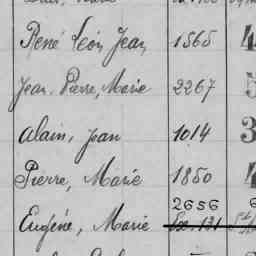 René Léon, Jean, 1565 4
Jean, Pierre, Marie 2267 5
Alain, Jean 1014 3
Pierre, Marie 1850 4
2656
Eugène, Marie